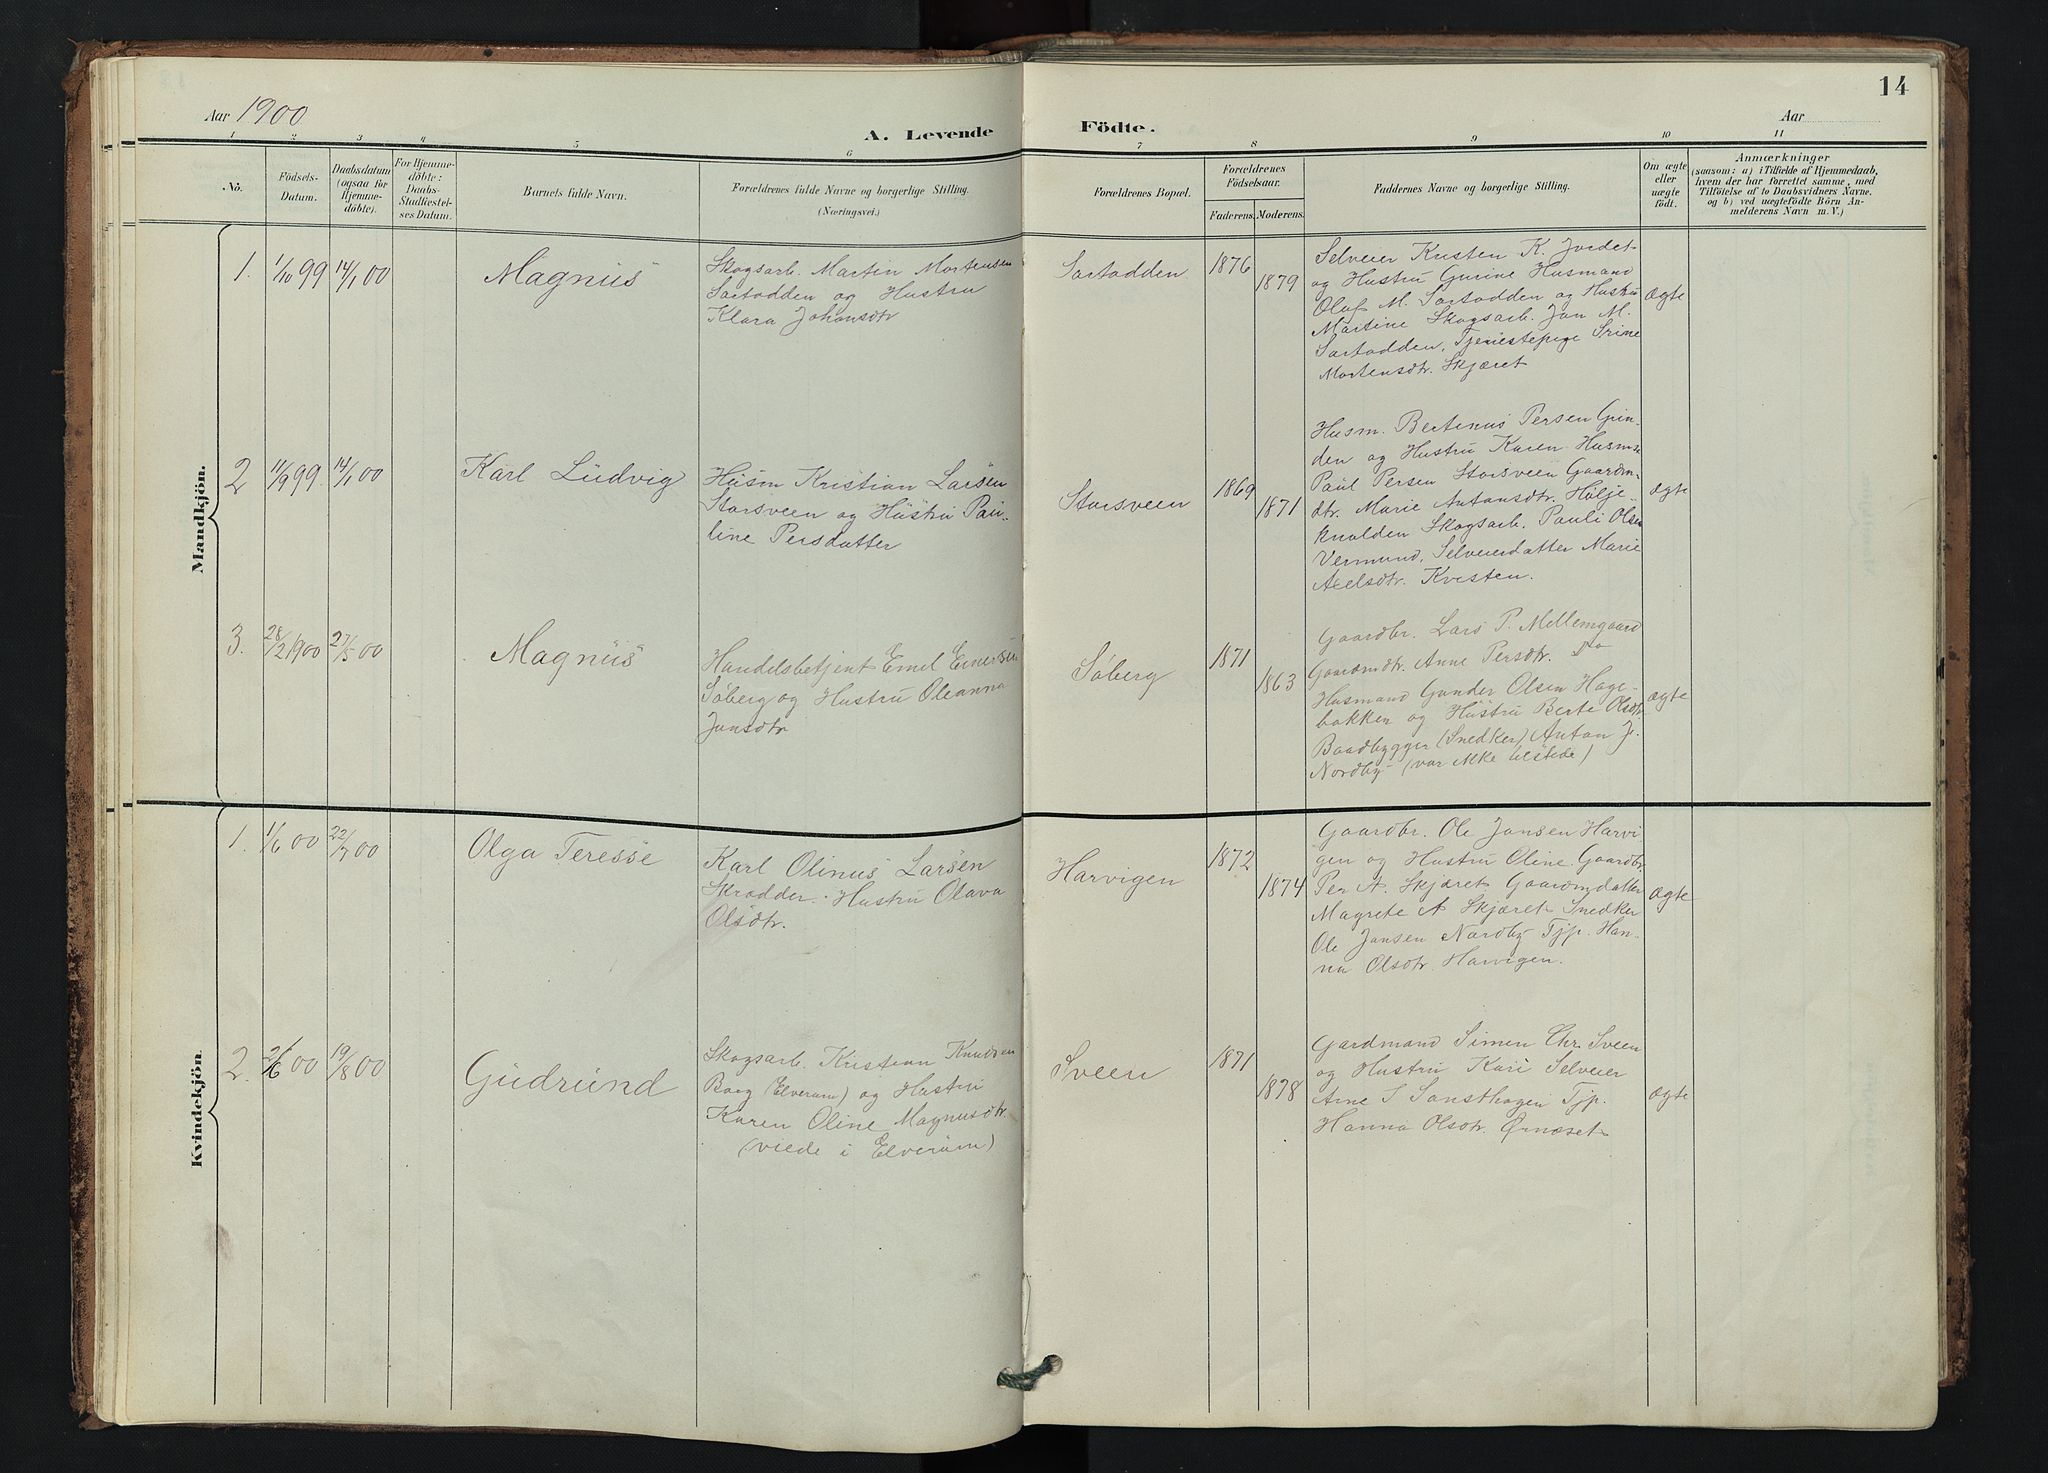 Aar 1900
A. Levende
Födte.
Aar
14
1 2 3 4 5 6 7 8 9 10 11
No.
Födsels-
Datum.
Daabsdatum
(ogsaa for
Hjemme-
döbte).
For Hjemme-
döbte:
Daabs-
Stadfæstel-
ses Datum.
Barnets fulde Navn.
Forældrenes fulde Navne og borgerlige Stilling.
(Næringsvei.)
Forældrenes Bopæl.
Forældrenes
Födselsaar.
Faderens. Moderens.
Faddernes Navne og borgerlige Stilling.
Om ægte
eller
uægte
födt.
Anmærkninger
(saasom: a) i Tilfælde af Hjemmedaab,
hvem der har forrettet samme, med
Tilföielse af to Daabsvidners Navne,
og b) ved uægtefödte Börn An-
melderens Navn m. V.)
Mandkjön.
1. 1/10 99 14/1 00
Magnus
Skogsarb. Martin Mortensen
Sartodden og Hustru
Klara Johansdtr
Sartodden
1876
1879
Selveier Kristen K. Jordet
og Hustru Gurine Husmand
Olaf M. Sartodden og Hustru
Martine Skogsarb. Jon M.
Sartodden, Tjenestepige Trine
Mortensdtr. Skjæret
ægte
2 11/9 99 14/1 00
Karl Ludvig
Husm Kristian Larsen
Storsveen og Hustru Pau-
line Persdatter
Storsveen
1869
1871
Husm. Bertinus Persen Grin-
den og Hustru Karen Husm
Paul Persen Storsveen Gaardm-
dtr. Marie Antonsdtr. Holje-
knulden Skogsarb. Pauli Olsen
Vermund, Selveierdatter Marie
Axelsdtr. Kvesten.
ægte
3. 28/2 1900 27/5 00
Magnus
Handelsbetjent Emel Einersen
Søberg og Hustru Oleanna
Jonsdtr
Søberg
1871
1863
Gaardbr. Lars P. Mellemgaard
Gaardmdtr. Anne Persdtr. Do
Husmand Gunder Olsen Hage-
bakken og Hustru Berte Olsdtr
Baadbygger (Snedker) Anton J.
Nordby (var ikke tilstede)
ægte
Kvindekjön.
1. 1/6 00 22/7 00
Olga Teresse
Karl Olinus Larsen
Skrædder. Hustru Olava
Olsdtr.
Harvigen
1872
1874
Gaardbr. Ole Jonsen Harvi-
gen og Hustru Oline Gaardbr.
Per A. Skjæret Gaardmdatter
Magrete A Skjæret Snedker
Ole Jonsen Nordby Tjp. Han-
na Olsdtr. Harvigen.
ægte
2. 2/6 00 19/8 00
Gudrund
Skogsarb. Kristian Knudsen
Borg (Elverum) og Hustru
Karen Oline Magnusdtr
(viede i Elverum)
Sveen
1871
1878
Gardmand Simen Chr. Sveen
og Hustru Kari Selveier
Arne S Sansthagen Tjp.
Hanna Olsdtr. Ørnæset
ægte